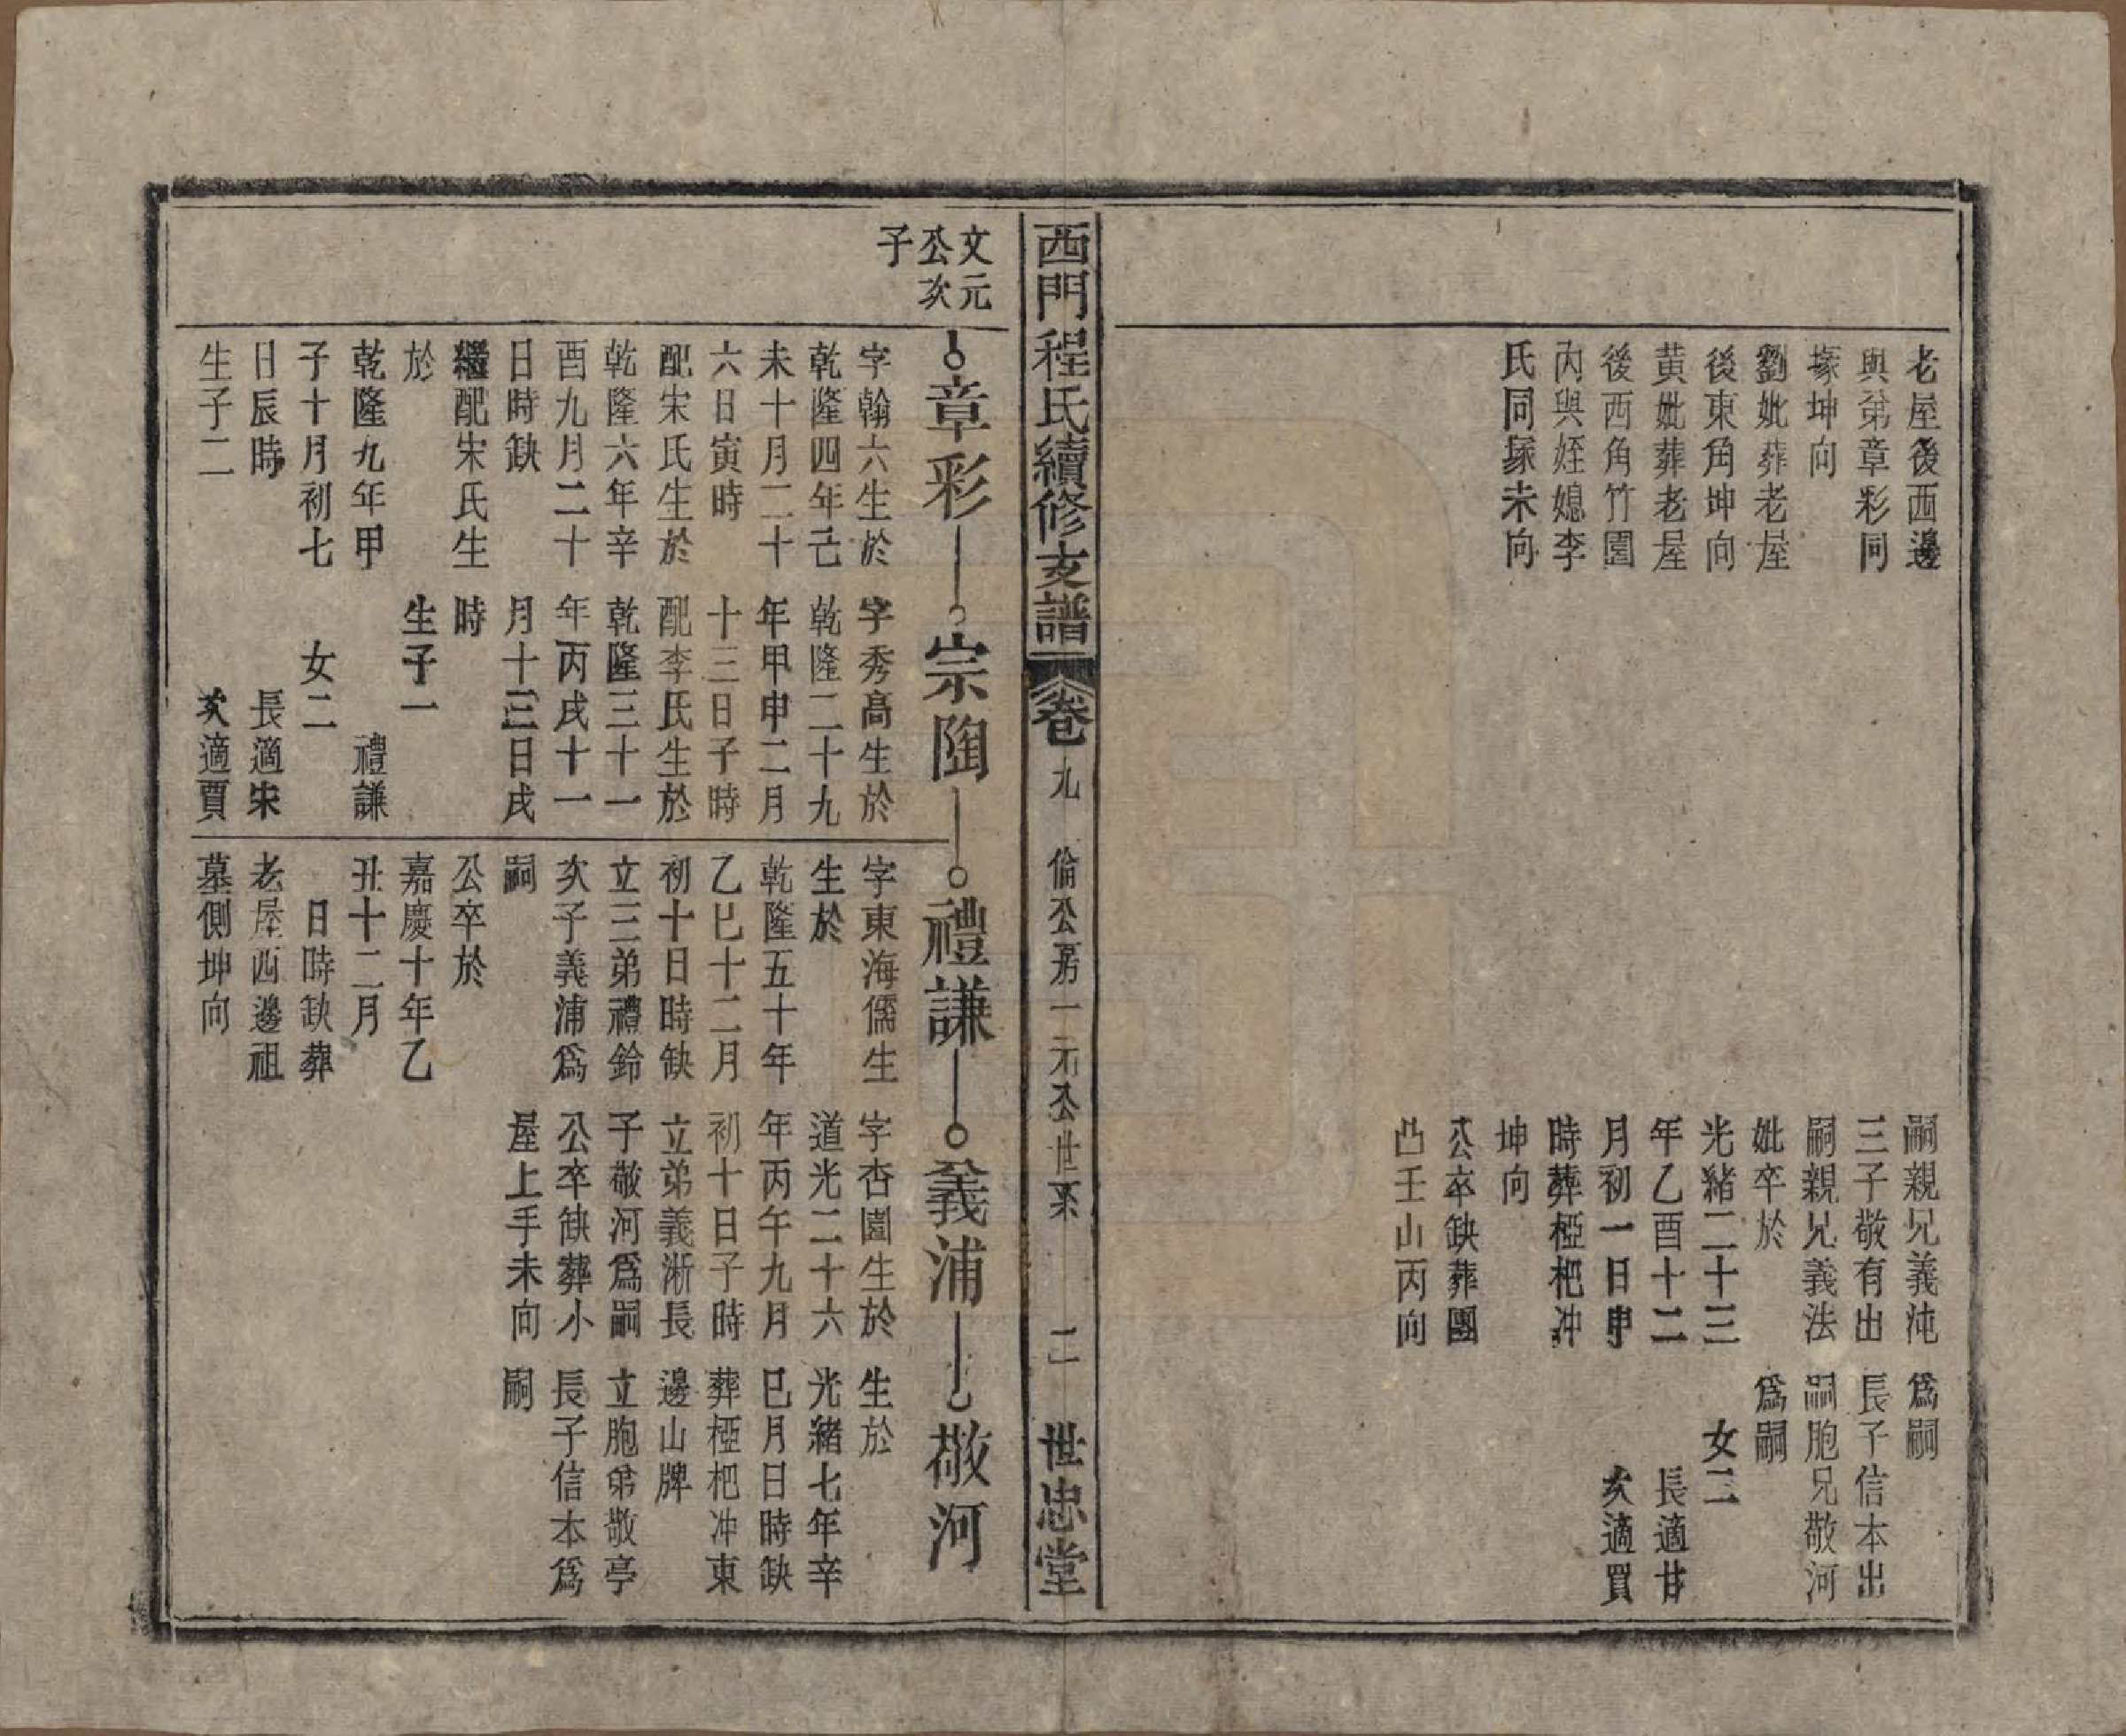 老屋後西邊
與弟章彩同
塚坤向
劉妣葬老屋
後東角坤向
黃妣葬老屋
後西角竹園
內與姪媳李
氏同塚未向
嗣親兄義沌
三子敬有出
嗣親兄義法
妣卒於
光緒二十三
年乙酉十二
月初一日申
時葬椏杷冲
坤向
公卒缺葬團
凸壬山丙向
為嗣
長子信本出
嗣胞兄敬河
為嗣
女二
長適甘
次適買
西門程氏續修支譜
卷九
倫公房一元公世系
二
世忠堂
文元
公次
子
章彩
宗陶
禮謙
義浦
敬河
字翰六生於
乾隆四年己
未十月二十
六日寅時
配宋氏生於
乾隆六年辛
酉九月二十
日時缺
繼配宋氏生
於
乾隆九年甲
子十月初七
日辰時
生子二
字秀高生於
乾隆二十九
年甲申二月
十三日子時
配李氏生於
乾隆三十一
年丙戌十一
月十三日戌
時
生子一
禮謙
女二
長適宋
次適賈
字東海儒生
生於
乾隆五十年
乙巳十二月
初十日時缺
立三弟禮鈴
次子義浦為
嗣
公卒於
嘉慶十年乙
丑十二月
日時缺葬
老屋西邊祖
墓側坤向
字杏園生於
道光二十六
年丙午九月
初十日子時
立弟義淅長
子敬河為嗣
公卒缺葬小
屋上手未向
生於
光緒七年辛
巳月日時缺
葬椏杷冲東
邊山牌
立胞弟敬亭
長子信本為
嗣